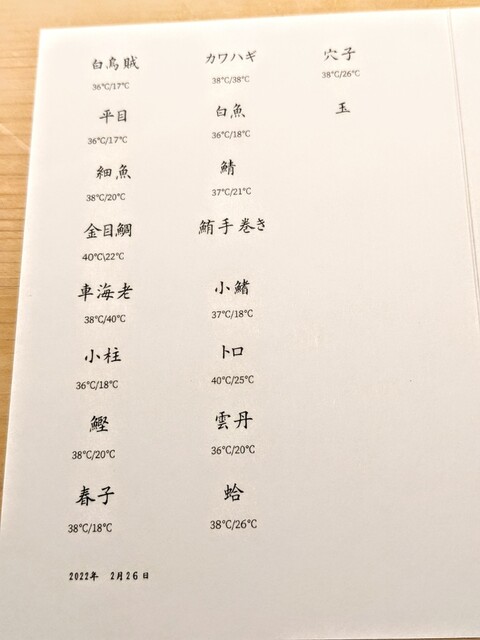 白烏賊
36℃/17℃
平目
36℃/17℃
細魚
38℃/20℃
金目鯛
40℃\22℃
車海老
38℃/40℃
小柱
36℃/18℃
鰹
38℃/20℃
春子
38℃/18℃
カワハギ
38℃/38℃
白魚
36℃/18℃
鯖
37℃/21℃
鮪手巻き
小鰭
37℃/18℃
トロ
40℃/25℃
雲丹
36℃/20℃
蛤
38℃/26℃
穴子
38℃/26℃
玉
2022年 2月26日